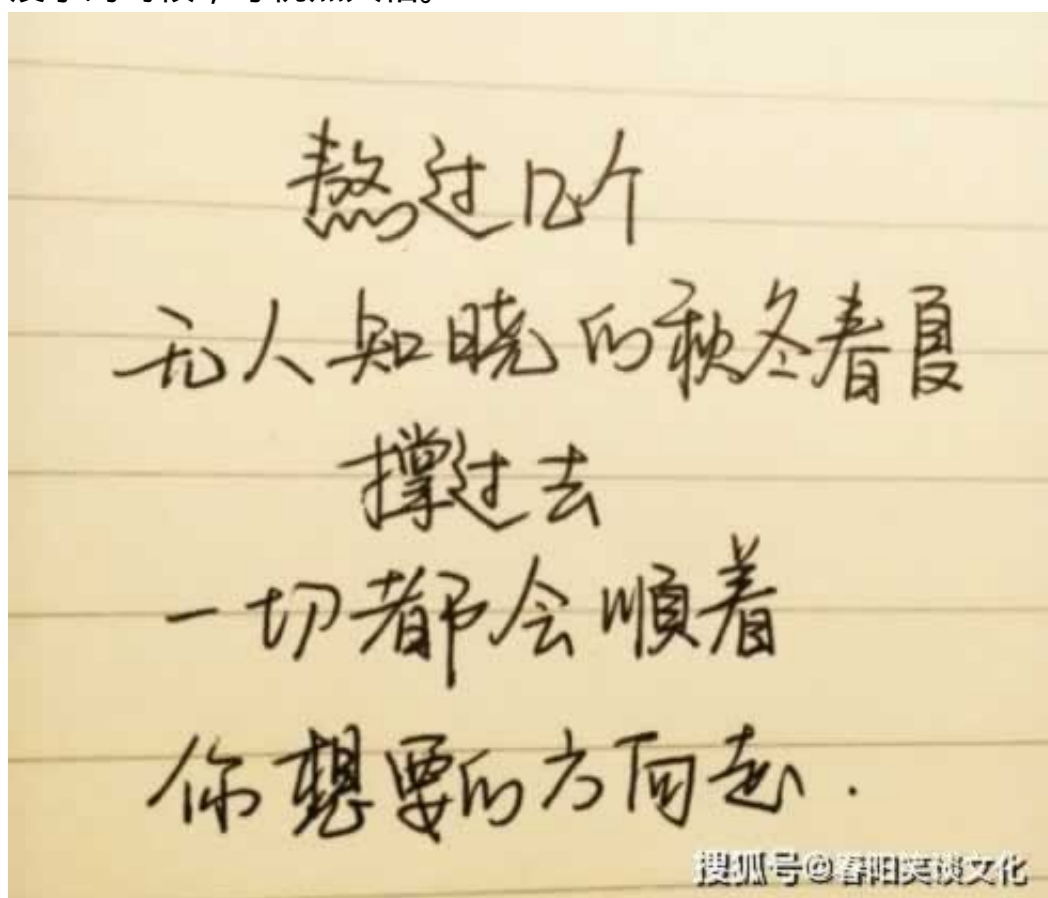 熬过几个
无人知晓的秋冬春夏
撑过去
一切都会顺着
你想要的方向走.
搜狐号@春阳笑谈文化